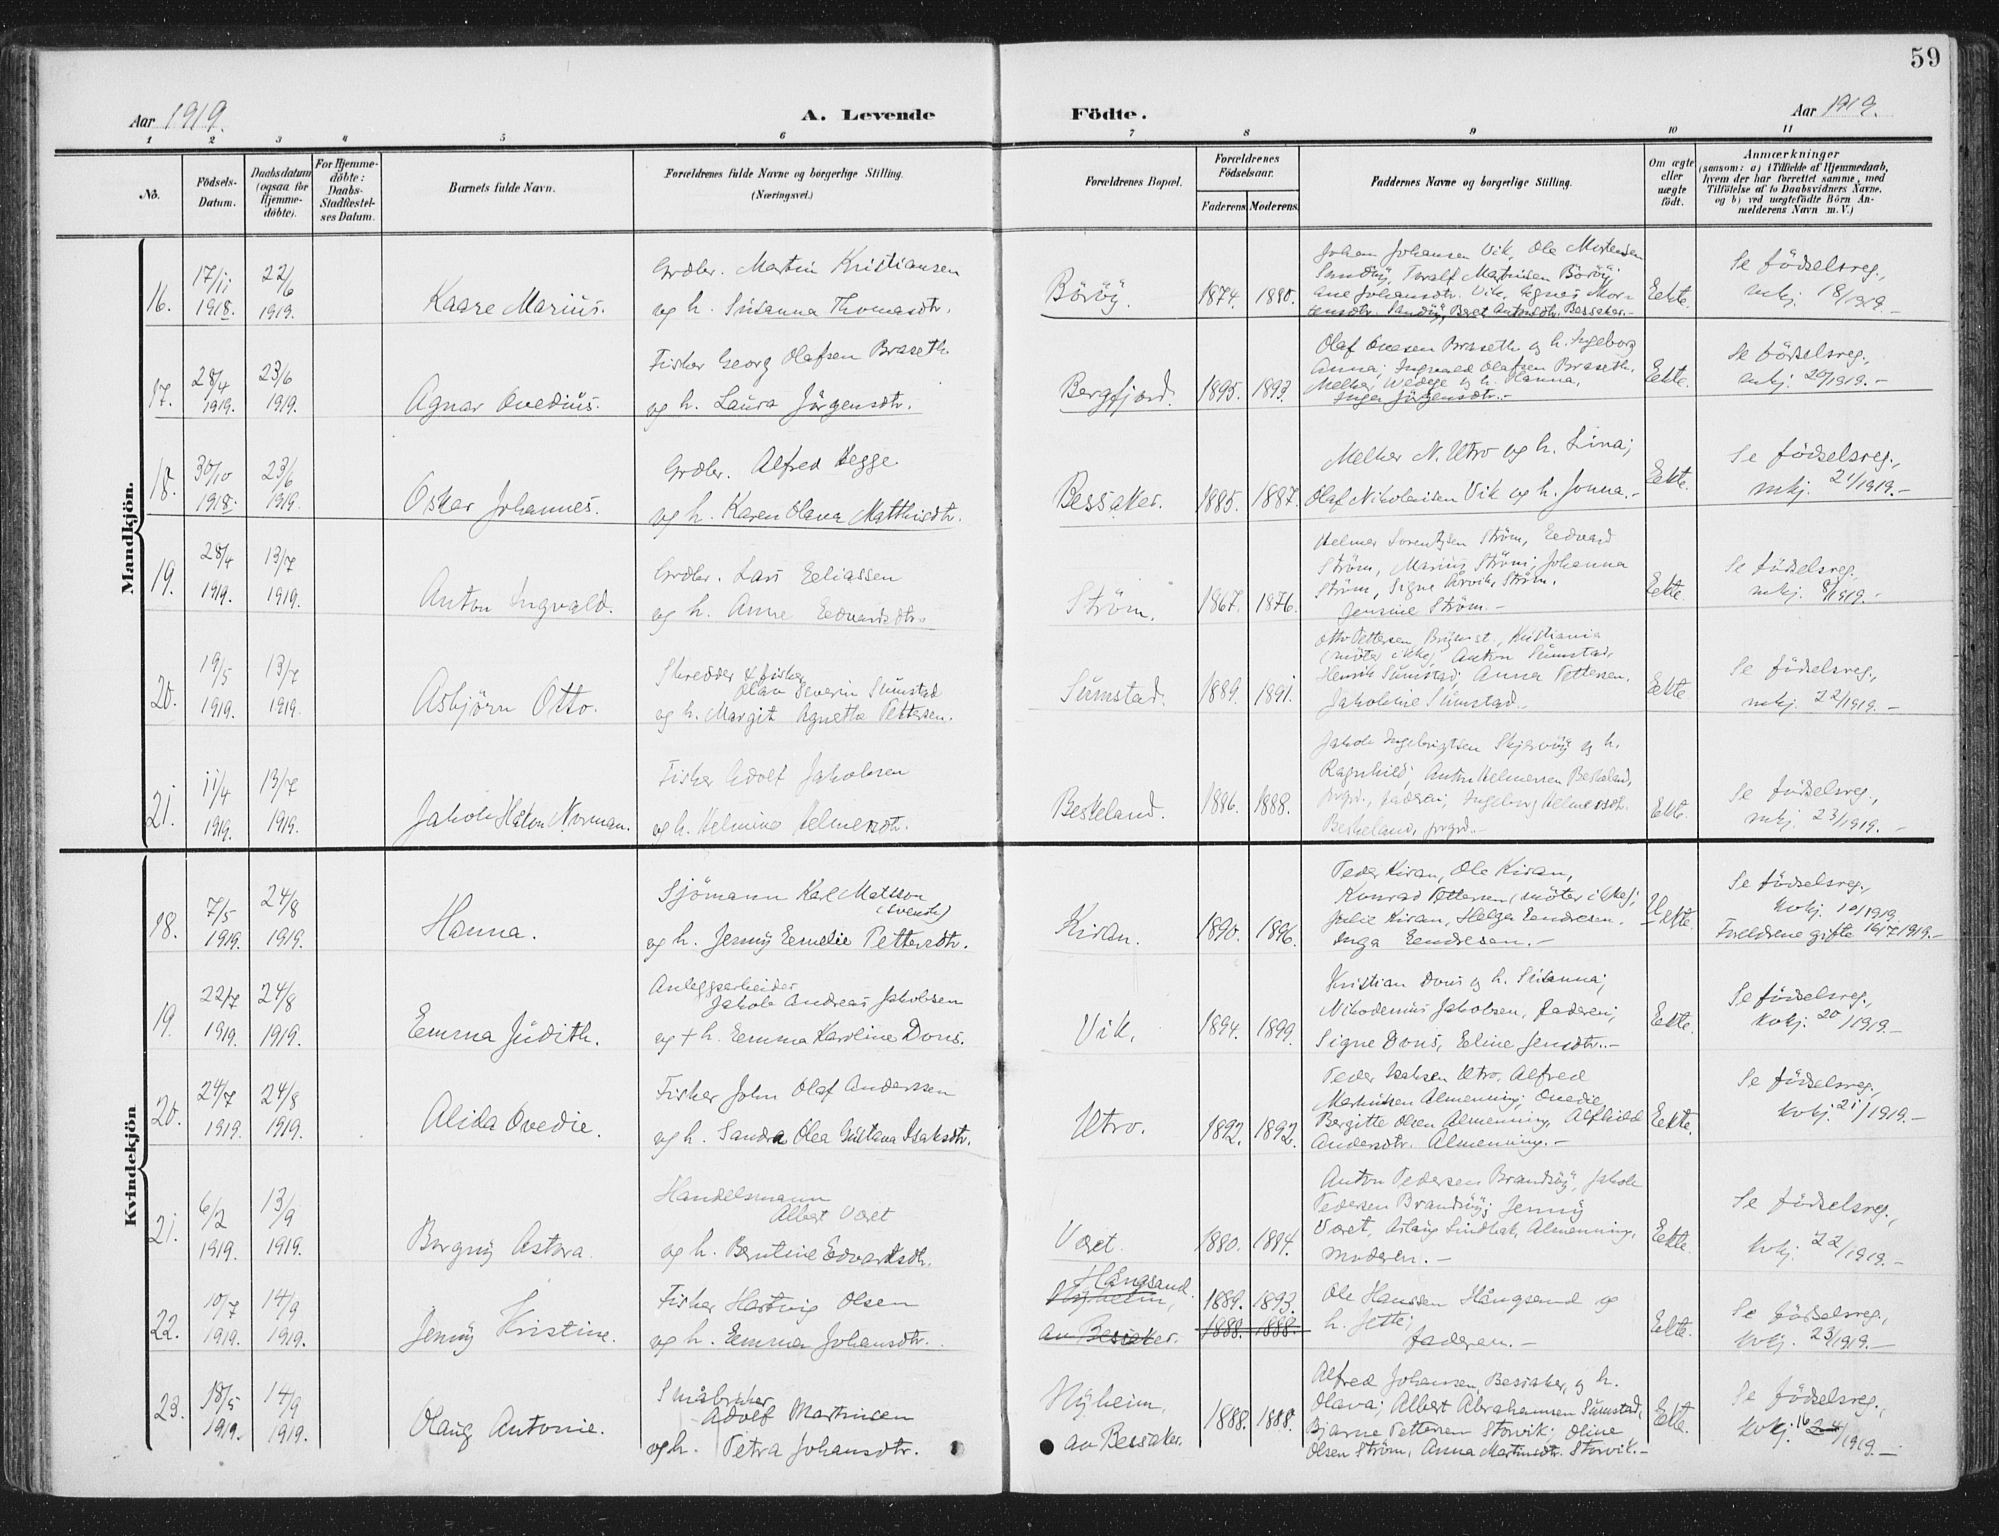 59
Aar 1919.
A. Levende Födte.
Aar 1919.
1 2 3 4 5 6 7 8 9 10 11
No.
Födsels-Datum.
Daabsdatum (ogsaa for Hjemme-döbte).
For Hjemme-döbte: Daabs-Stadfæstel-ses Datum.
Barnets fulde Navn.
Forældrenes fulde Navne og borgerlige Stilling.
(Næringsvei.)
Forældrenes Bopæl.
Forældrenes Födselsaar.
Faderens Moderens
Faddernes Navne og borgerlige Stilling.
Om ægte eller uægte födt.
Anmærkninger
(saasom: a) i Tilfælde af Hjemmedaab,
hvem der har forrettet samme, med
Tilföielse af to Daabsvidners Navne,
og b) ved uægtefödte Börn An-
melderens Navn m. V.)
Mandkjön.
16. 17/11 1918. 22/6 1919. Kaare Marius.
Grdbr. Martin Kristiansen
og h. Susanna Thomasdtr.
Böröy. 1874. 1880.
Johan Johansen Vik, Ole Mortensen
Sandöy, Toralf Martinsen Böröy;
Ane Johansdtr. Vik, Agnes Mor-
tensdtr. Sandöy, Beret Antonsdtr. Bessaker.-
Eekte.
Se födselsreg.,
mkj. 18/1919.-
17. 28/4 1919. 23/6 1919. Agnar Ovedius.
Fisker Georg Olafsen Braseth
og h. Laura Jörgensdtr.
Bergfjord. 1895. 1893.
Olaf Ovesen Braseth og h. Ingeborg
Anna; Ingvald Olafsen Braseth,
Melker Wedege og h. Hanna,
Inger Jörgensdtr.-
Eekte.
Se födselsreg.,
mkj. 20/1919.-
18. 30/10 1918. 23/6 1919. Oskar Johannes.
Grdbr. Alfred Hegge
og h. Karen Olava Matthisdtr.
Bessaker. 1885. 1887.
Melker N. Utro og h. Lina;
Olaf Nikolaisen Vik og h. Jonna.-
Eekte.
Se födselsreg.,
mkj. 21/1919.-
19. 28/4 1919. 13/7 1919. Anton Ingvald.
Grdbr. Lars Eeliassen
og h. Anne Eedvardsdtr.
Ström. 1867. 1876.
Helmer Lorentzen Ström, Eedvard
Ström, Marius Ström; Johanna
Ström, Signe Arvik, Ström.
Jensine Ström.-
Eekte.
Se födselsreg.,
mkj. 8/1919.-
20. 19/5 1919. 13/7 1919. Asbjörn Otto.
Skredder & fisker
Olav Severin Sumstad
og h. Margit Agnetta Pettersen.
Sumstad. 1889. 1891.
Otto Pettersen, Kristiania
(möter ikke) Anton Sumstad,
Henrik Sumstad; Anna Pettersen,
Jakobine Sumstad.
Eekte
Se födselsreg.,
mkj. 22/1919.-
21. 11/4 1919. 13/7 1919. Jakob Håkon Norman.
Fisker Advolf Jakobsen
og h. Helmine Helmersdtr.
Beskeland. 1886. 1888.
Jakob Ingebrigtsen Skjervöy og h.
Ragnhild; Anton Helmersen Beskeland,
faderen; Ingeborg Helmersdtr.
Beskeland,
Eekte.
Se födselsreg.,
mkj. 23/1919.-
Kvindekjön
18. 7/5 1919. 24/8 1919. Hanna.
Sjömann Karl Matsson
(svensk)
og h. Jenny Eemelie Pettersdtr.
Kiran. 1890. 1896.
Peder Kiran, Ole Kiran,
Konrad Pettersen (möter ikke);
Julie Kiran, Helga Eendresen.
Inga Eendresen.-
Uekte.
Se födselsreg.,
kvkj. 10/1919.
Foreldrene gifte 16/7 1919.-
19. 22/7 1919. 24/8 1919. Eemma Judith.
Anleggsarbeider
Jakob Andreas Jakobsen
og + h. Eemma Karoline Doris.
Vik. 1894. 1899.
Kristian Doris og h. Susanna;
Nikodemus Jakobsen, faderen;
Signe Doris, Eeline Jensdtr.-
Eekte.
Se födselsreg.,
kvkj. 20/1919.-
20. 24/7 1919. 24/8 1919. Alida Ovedie.
Fisker John Olaf Anderssen
og h. Sandra Olea Gustava Isaksdtr.
Utro. 1892. 1892.
Peder Isaksen Utro, Alfred
Martinsen Almenning; Ovedie
Bergitte Olsen Almenning, Alfhild
Andersdtr. Almenning.-
Eekte.
Se födselsreg.,
kvkj. 21/1919.-
21. 6/2 1919. 13/9 1919. Borgny Astora.
Handelsmann
Albert Været
og h. Berntine Edvardsdtr.
Været. 1880. 1884.
Anton Pedersen Brandsöy, Jakob
Pedersen Brandsöy; Jenny
Været, Aslaug Lindbak, Almenning,
moderen.-
Eekte.
Se födselsreg.,
kvkj. 22/1919.-
22. 10/7 1919. 14/9 1919. Jenny Kristine.
Fisker Hartvig Olsen
og h. Eemma Johansdtr.
Hångsand.
Nyheim,
av Bessaker.
1889. 1893.
1888. 1888.
Ole Hanssen Hångsand og
h. Jette;
faderen.-
Eekte.
Se födselsreg.,
kvkj. 23/1919.-
23. 18/5 1919. 14/9 1919. Olaug Antonie.
Småbruker
Advolf Martinsen
og h. Petra Johansdtr.
Nyheim,
av Bessaker.
1888. 1888.
Alfred Johansen, Bessaker, og h.
Olava; Albert Abrahamsen Sumstad,
Bjarne Pettersen Storvik; Oline
Olsen Ström, Anna Martinsdtr. Storvik.-
Eekte.
Se födselsreg.,
kvkj. 16 24/1919.-